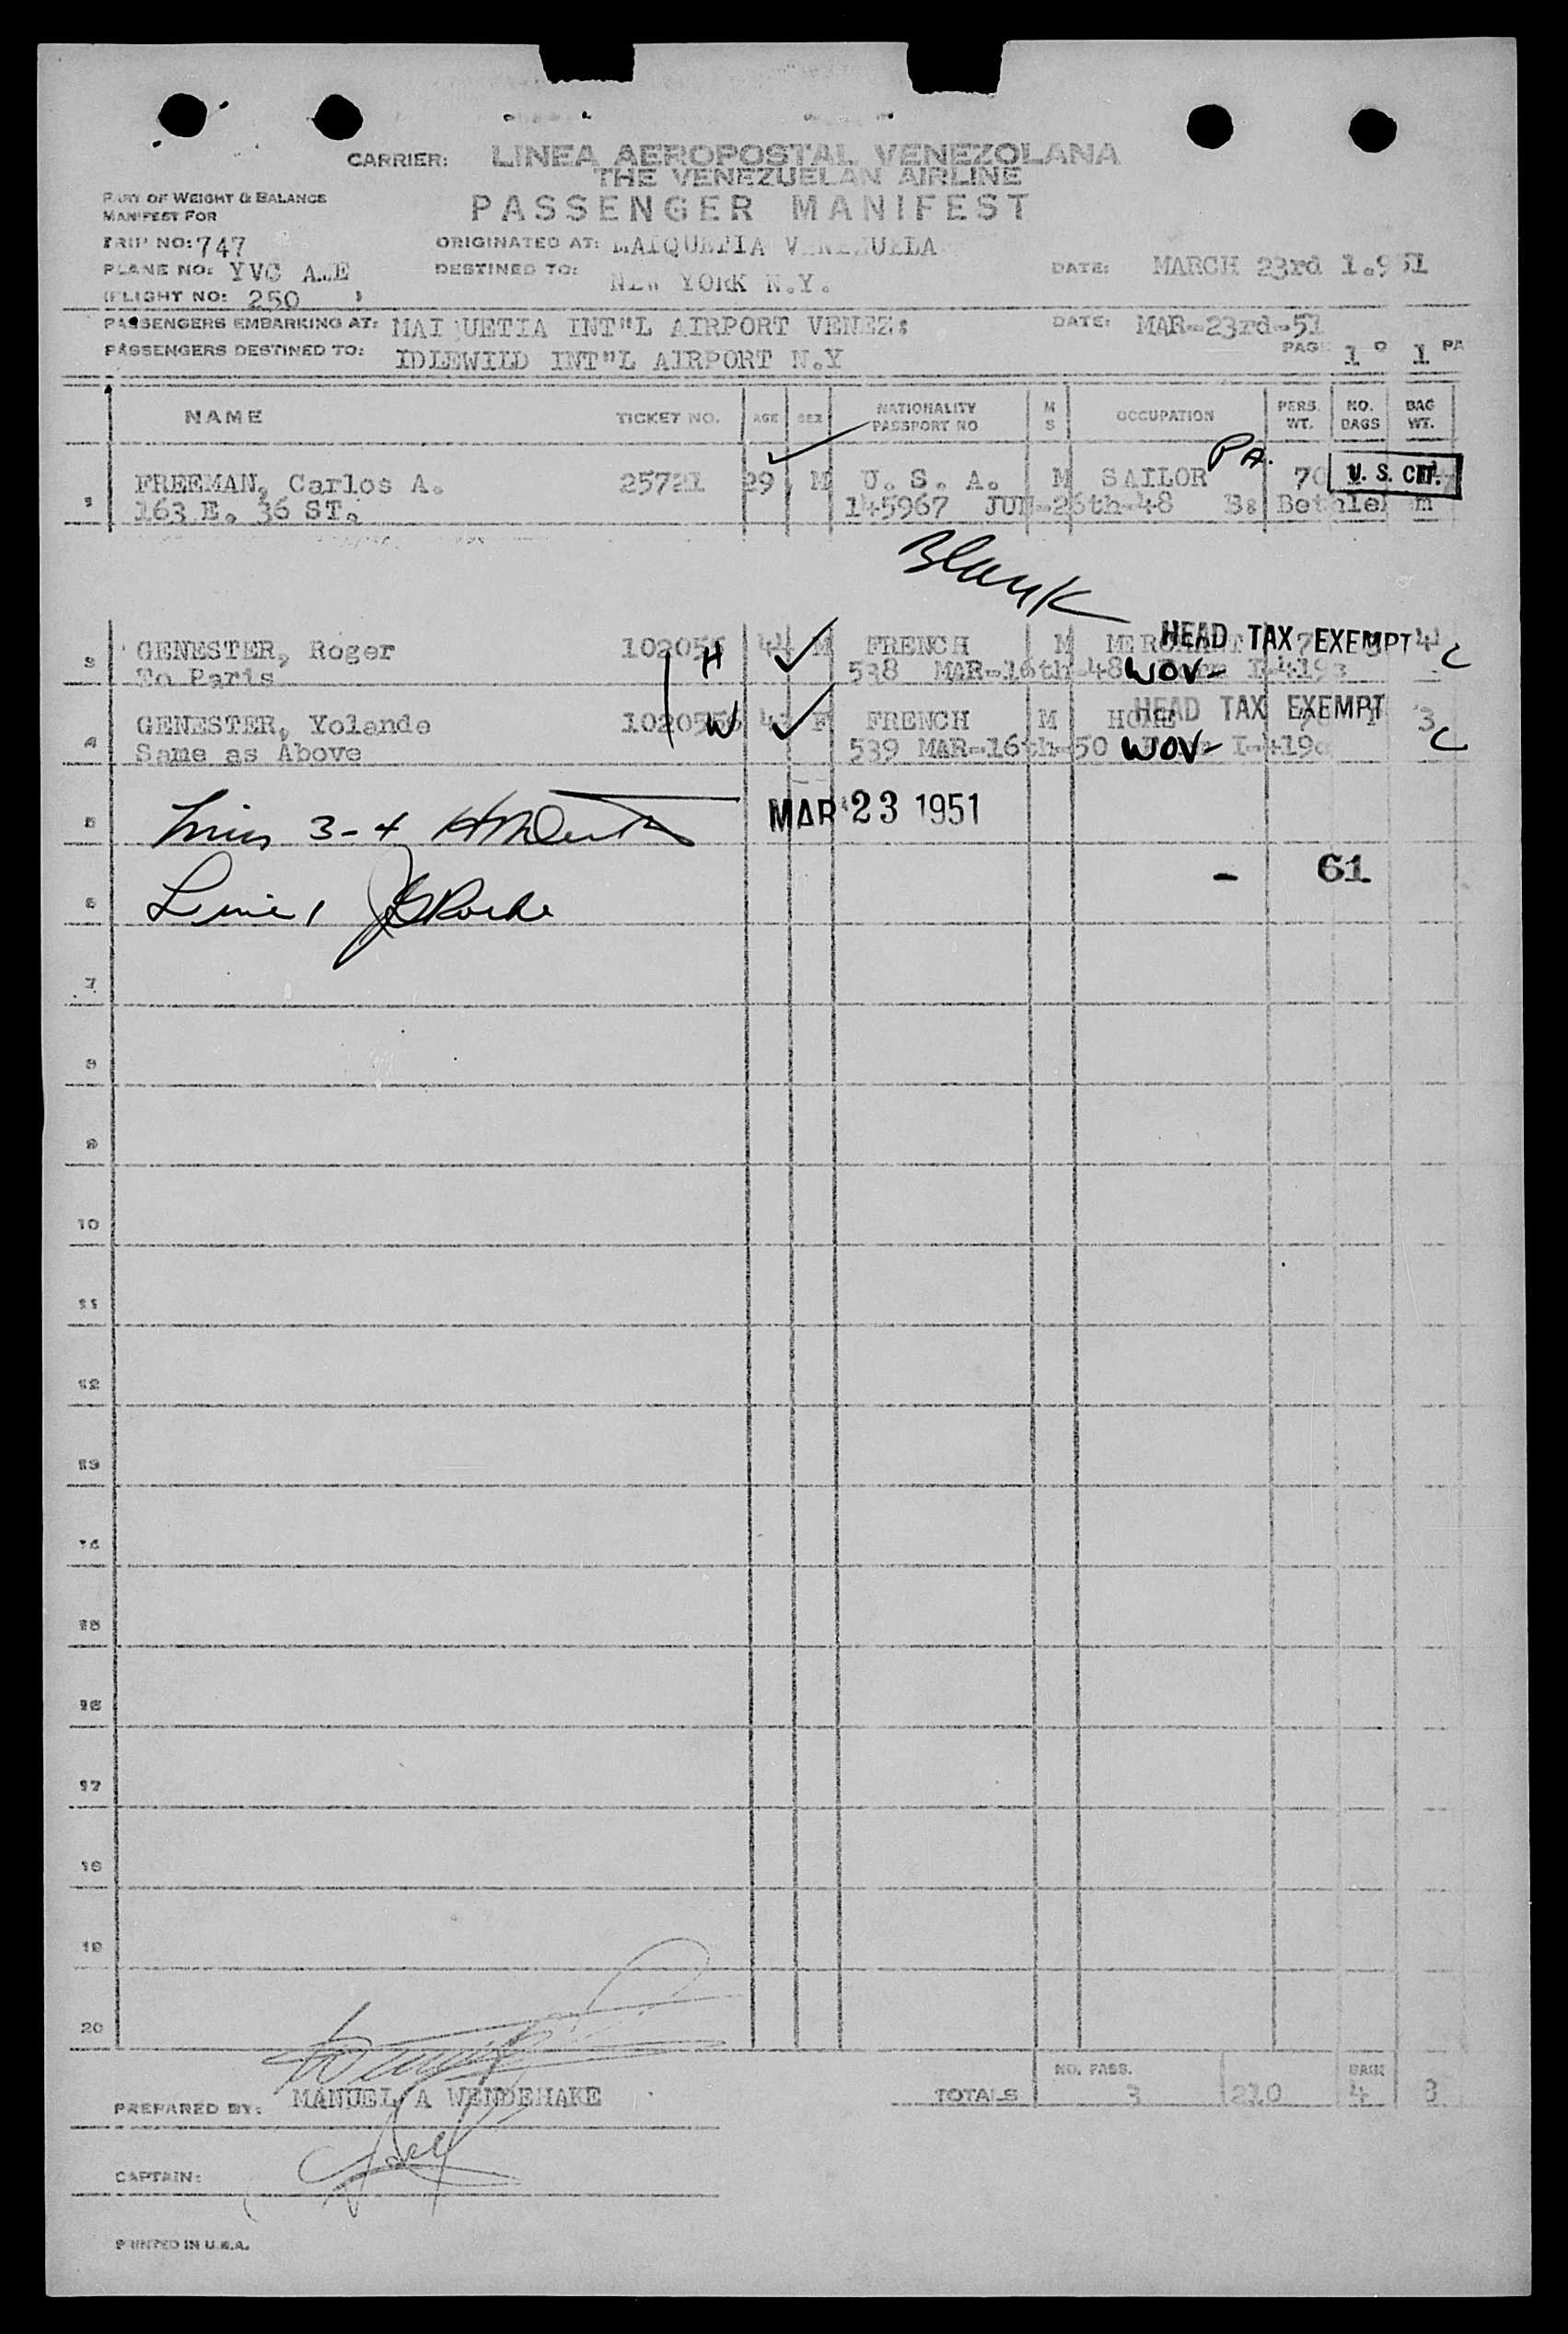 CARRIER: LINEA AEROPOSTAL VENEZOLANA
THE VENEZUELAN AIRLINE
PART OF WEIGHT & BALANCE
MANIFEST FOR
PASSENGER MANIFEST
TRIP NO: 747
ORIGINATED AT: MAIQUETIA VENEZUELA
PLANE NO: YVC A.E
DESTINED TO: NEW YORK N.Y.
DATE: MARCH 23rd 1.951
(FLIGHT NO: 250 )
PASSENGERS EMBARKING AT: MAIQUETIA INT"L AIRPORT VENEZ:
DATE: MAR-23rd-51
PASSENGERS DESTINED TO: IDLEWILD INT"L AIRPORT N.Y
PAGE 1 O 1 PA
NAME TICKET NO. AGE SEX NATIONALITY PASSPORT NO M S OCCUPATION PERS. WT. NO. BAGS BAG WT.
FREEMAN, Carlos A. 25721 29 M U. S. A. M SAILOR PA. 70 U. S. CIT.
163 E. 36 ST. 145967 JUN-26th-48 B: Bethlehem
Blank
3 GENESTER, Roger 102055 H 44 M FRENCH M MERCHANT HEAD TAX EXEMPT 4 C
To Paris 538 MAR-16th-48 WOV- Form I-419
4 GENESTER, Yolande 1020556 W F FRENCH M HOME HEAD TAX EXEMPT 3 C
Same as Above 539 MAR-16th-50 WOV- Form I-419
5 3-4 MAR 23 1951
- 61
6 Line 1
7
8
9
10
11
12
13
14
15
16
17
18
19
20
TOTALS NO. PASS. 3 210 BAGS 4 8
PREPARED BY: MANUEL A WENDEHAKE
CAPTAIN:
PRINTED IN U.S.A.